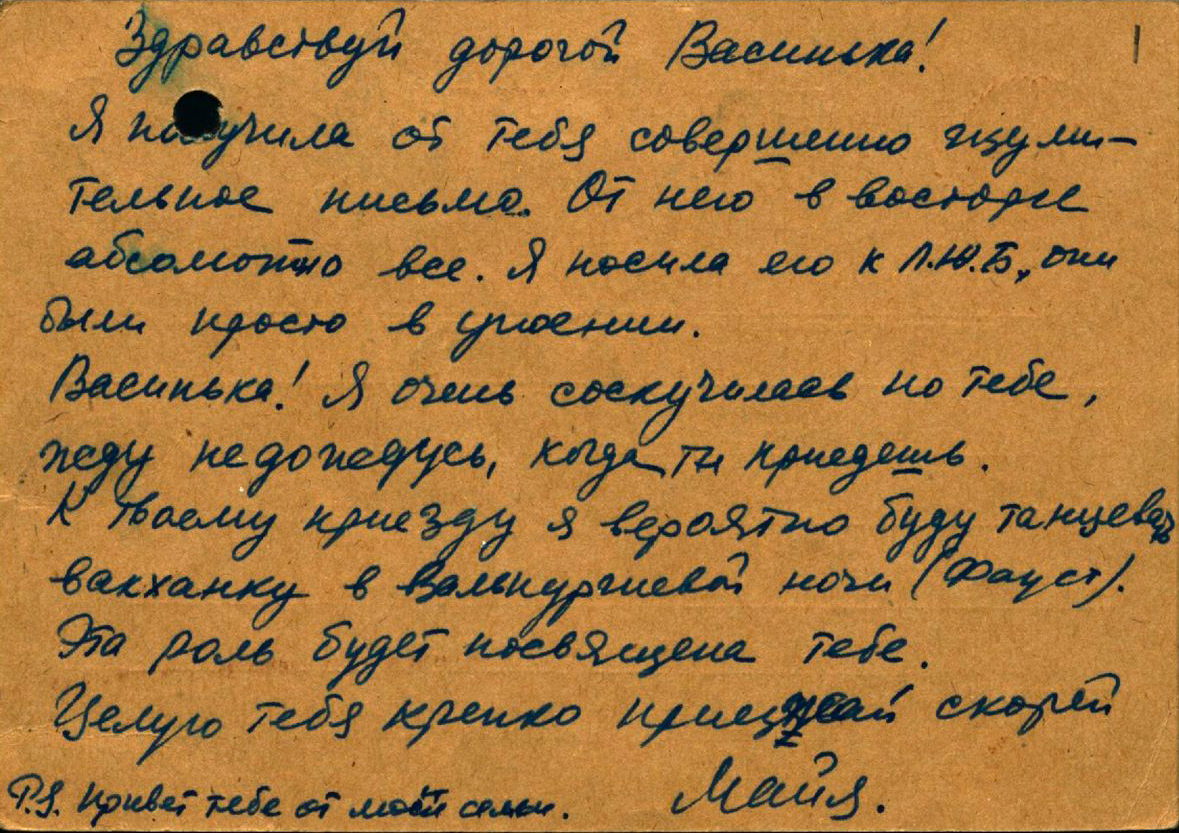 Здравствуй дорогой Васинька!
Я получила от тебя совершенно изуми-
тельное письмо. От него в восторге
абсолютно все. Я носила его к Л.Ю.Б., они
были просто в упоении.
Васинька! Я очень соскучилась по тебе,
жду недождусь, когда ты приедешь.
К твоему приезду я вероятно буду танцевать
вакханку в Вальпургиевой ночи (Фауст).
Эта роль будет посвящена тебе.
Целую тебя крепко приезжай скорей
Майя.
P.S. Привет тебе от моей семьи.